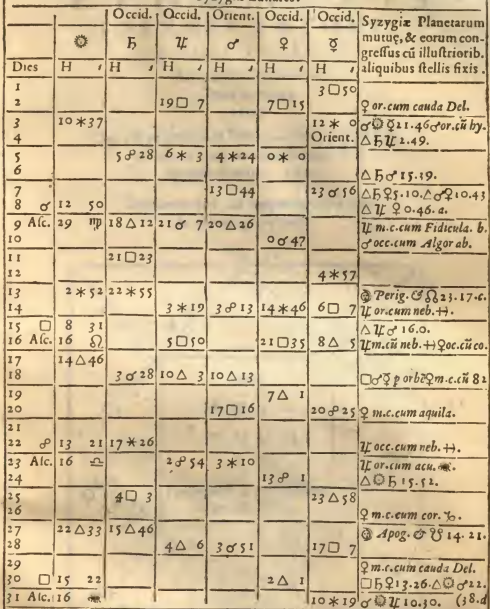 Occid. Occid. Orient. Occid. Occid. Syzygiæ Planetarum
☼ ♄ ♃ ♂ ♀ ☿ mutuę, & eorum con-
gressus cū illustriorib.
Dies H ′ H ′ H ′ H ′ H ′ H ′ aliquibus stellis fixis.
1 3□50
2 19□ 7 7□15 ♀ or. cum cauda Del.
3 10✶37 12✶ 0 ☌☼☿21.46♂or.cū hy.
4 Orient. △♄♃ 2.49.
5 5☍28 6✶ 3 4✶24 0✶ 0
6 △♄♂ 15.19.
7 13□44 23☌56 △♄♀5.10.△♂♀10.43
8 ☌ 12 50 △♃♀0.46.a.
9 Asc. 29 ♍ 18△12 21☌ 7 20△26 ♃ m.c.cum Fidicula. b.
10 0☌47 ♂ occ.cum Algorab.
11 21□23
12 4✶57
13 2✶52 22✶55 Perig. & ☊ 23.17.c.
14 3✶19 3☍13 14✶46 6□ 7 ♃ or.cum neb. ♐.
15 □ 8 31 △♃♂ 16.0.
16 Asc. 16 ♌ 5□50 21□35 8△ 5 ♃m.cū neb.♐♀oc.cūco.
17 14△46
18 3☌28 10△ 3 10△13 □♂☿p orbē♀m.c.cū 82
19 7△ 1
20 17□16 20☍25 ♀ m.c.cum aquila.
21
22 ☍ 13 21 17✶26 ♃ occ.cum neb. ♐.
23 Asc. 16 ♎ 2☍54 3✶10 ♃ or.cum acu. ♏.
24 13☍ 1 △☼♄ 15.52.
25 4□ 3 23△58
26 ♀ m.c.cum cor. ♑.
27 22△33 15△46 Apog. & ☋ 14.21.
28 4△ 6 3☌51 17□ 7
29 ♀m.c.cum cauda Del.
30 □ 15 22 2△ 1 □♄♀13.26.△☼♂22.
31 Asc. 16 ♏ 10✶19 ☌☼♃ 10.30. (38.d